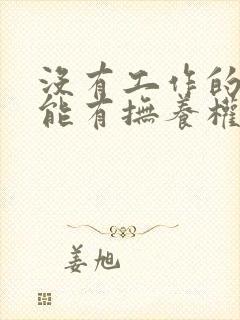 沒有工作的
能有撫養權
姜旭